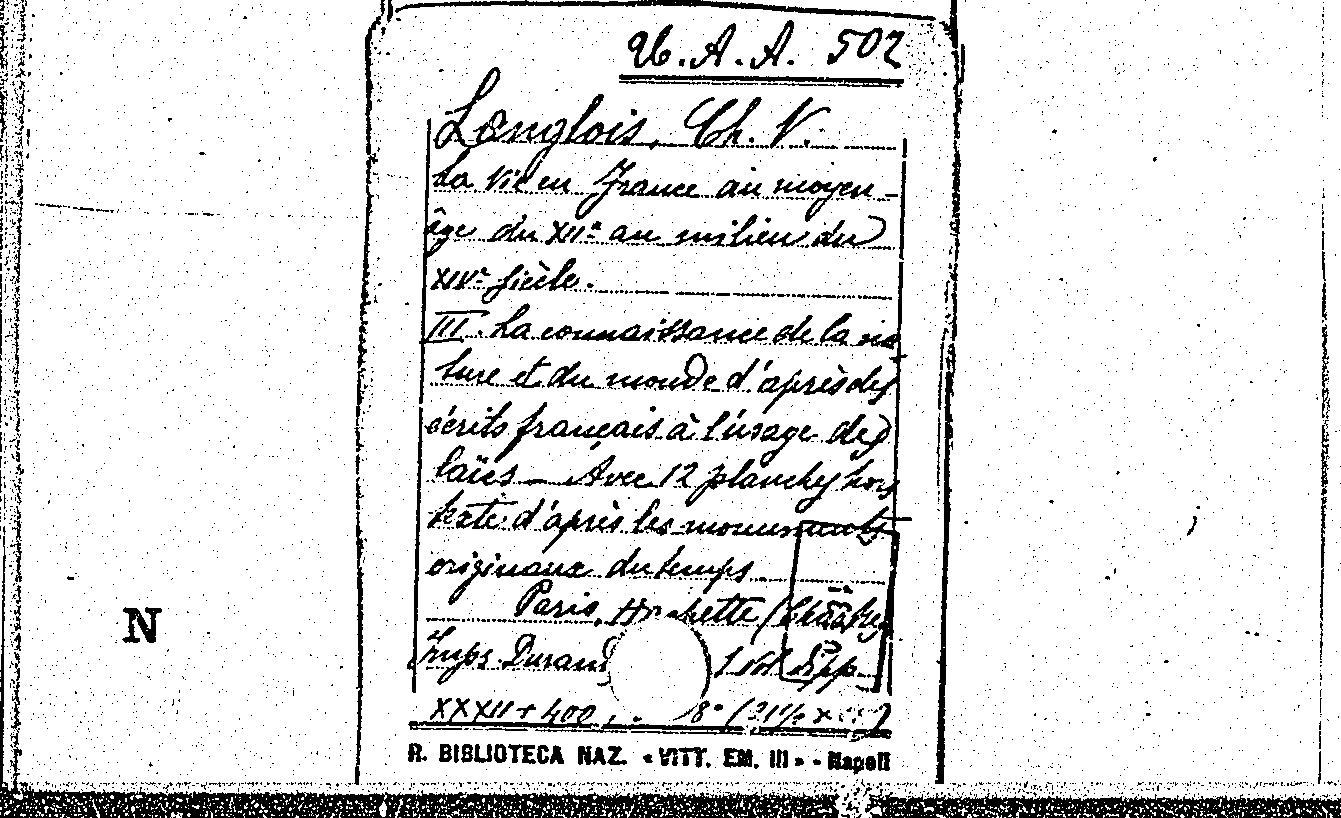 U.A.A. 502
Langlois, Ch. V.
La Vie en France au moyen-
âge du XIIe au milieu du
XIVe siècle.
III. La connaissance de la na
ture et du monde d'après des
écrits français à l'usage des
laïcs - Avec 12 planches hors
texte d'après les monuments
originaux du temps.
Paris, Hachette (
Imp. Durand 1 vol. pp.
XXXII + 400, 8° (
R. BIBLIOTECA NAZ. « VITT. EM. III » - Napoli
N